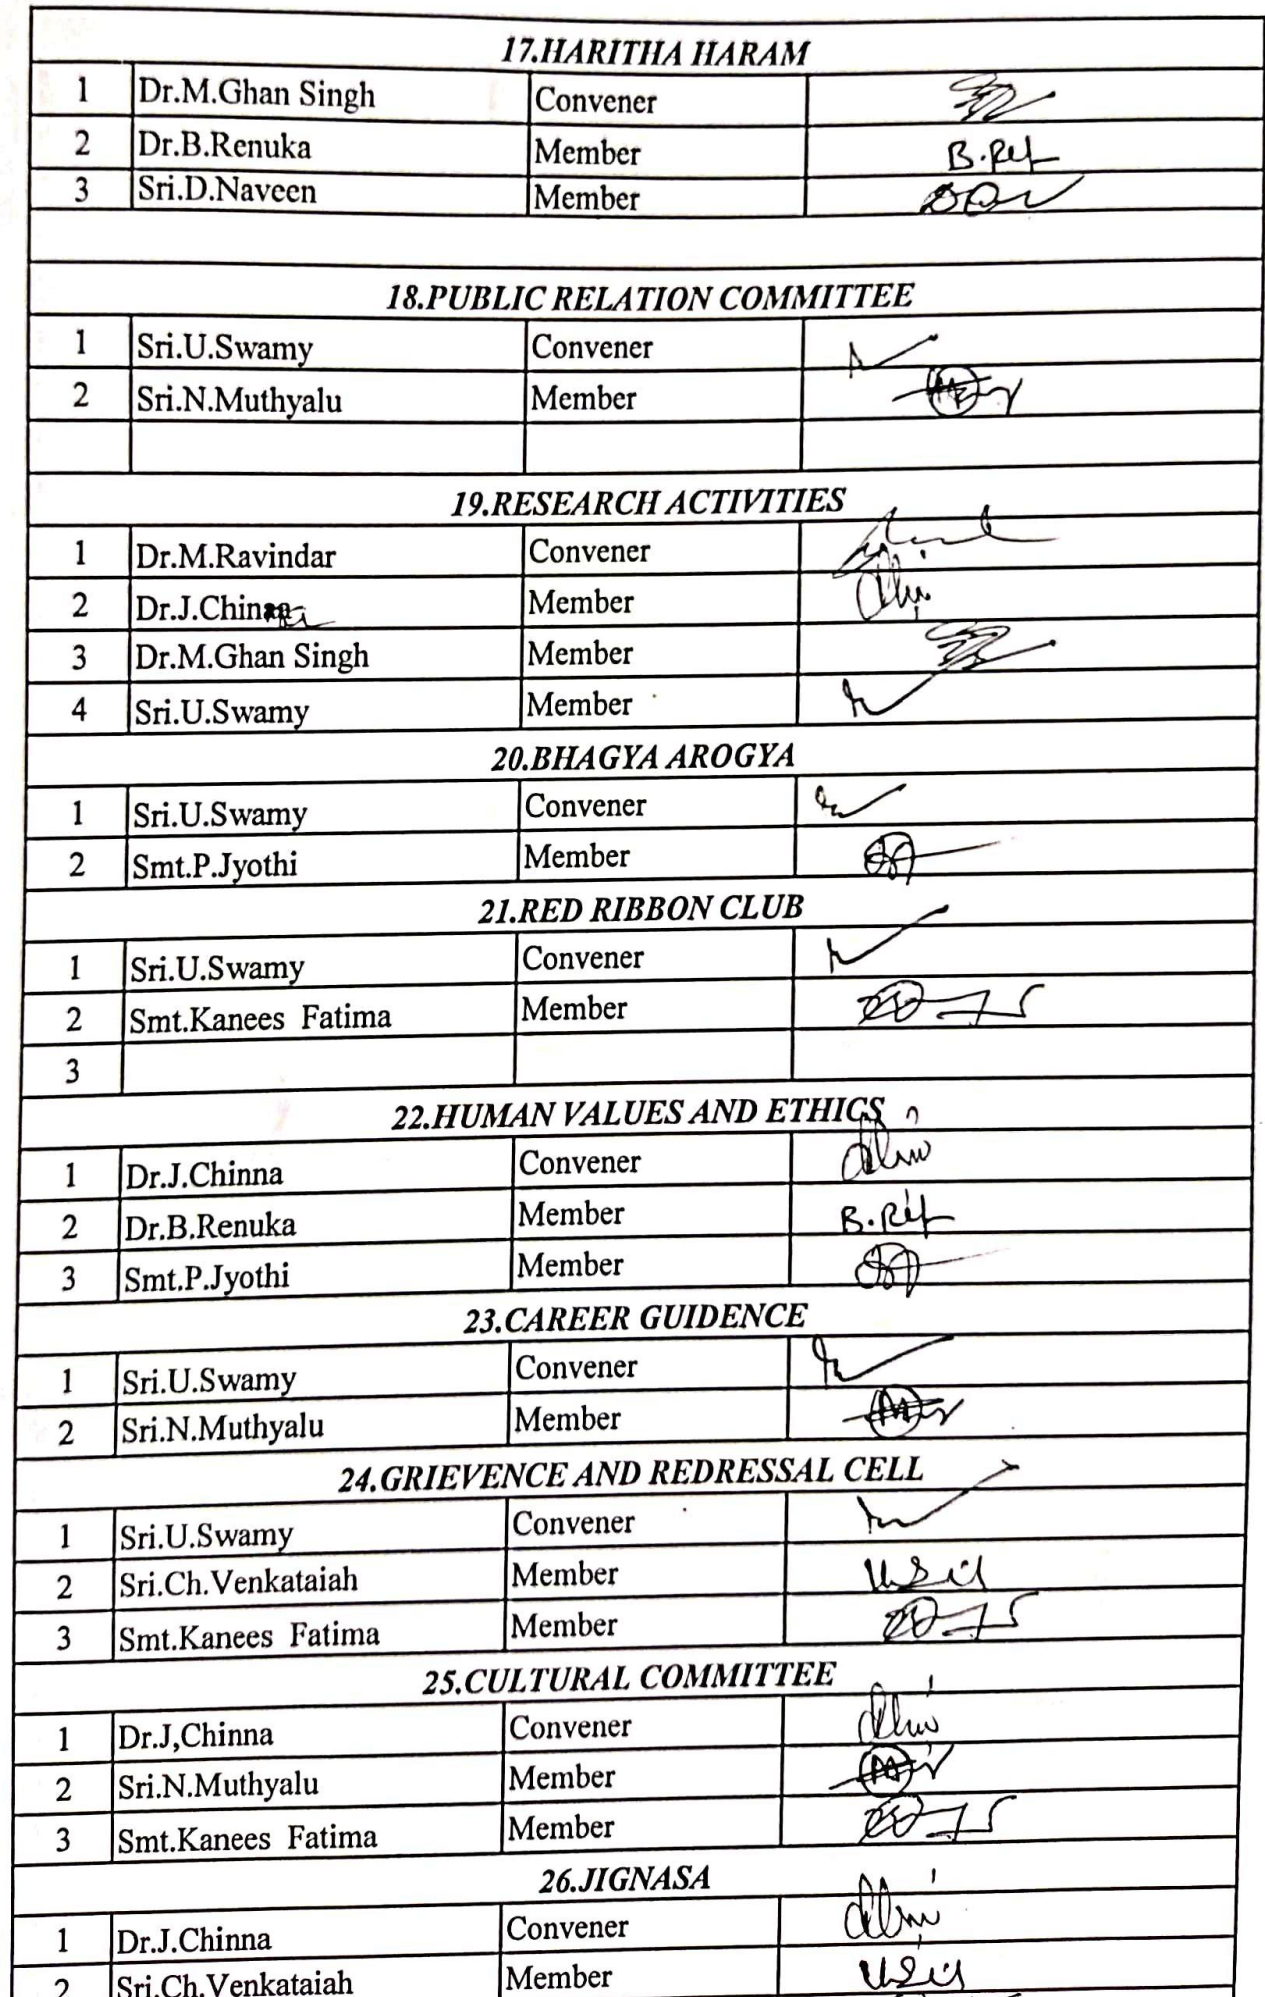 17.HARITHA HARAM
1 Dr.M.Ghan Singh Convener
2 Dr.B.Renuka Member B.Ref
3 Sri.D.Naveen Member
18.PUBLIC RELATION COMMITTEE
1 Sri.U.Swamy Convener
2 Sri.N.Muthyalu Member
19.RESEARCH ACTIVITIES
1 Dr.M.Ravindar Convener
2 Dr.J.Chinna Member
3 Dr.M.Ghan Singh Member
4 Sri.U.Swamy Member
20.BHAGYA AROGYA
1 Sri.U.Swamy Convener
2 Smt.P.Jyothi Member
21.RED RIBBON CLUB
1 Sri.U.Swamy Convener
2 Smt.Kanees Fatima Member
3
22.HUMAN VALUES AND ETHICS
1 Dr.J.Chinna Convener
2 Dr.B.Renuka Member B.Ref
3 Smt.P.Jyothi Member
23.CAREER GUIDENCE
1 Sri.U.Swamy Convener
2 Sri.N.Muthyalu Member
24.GRIEVENCE AND REDRESSAL CELL
1 Sri.U.Swamy Convener
2 Sri.Ch.Venkataiah Member
3 Smt.Kanees Fatima Member
25.CULTURAL COMMITTEE
1 Dr.J,Chinna Convener
2 Sri.N.Muthyalu Member
3 Smt.Kanees Fatima Member
26.JIGNASA
1 Dr.J.Chinna Convener
2 Sri.Ch.Venkataiah Member